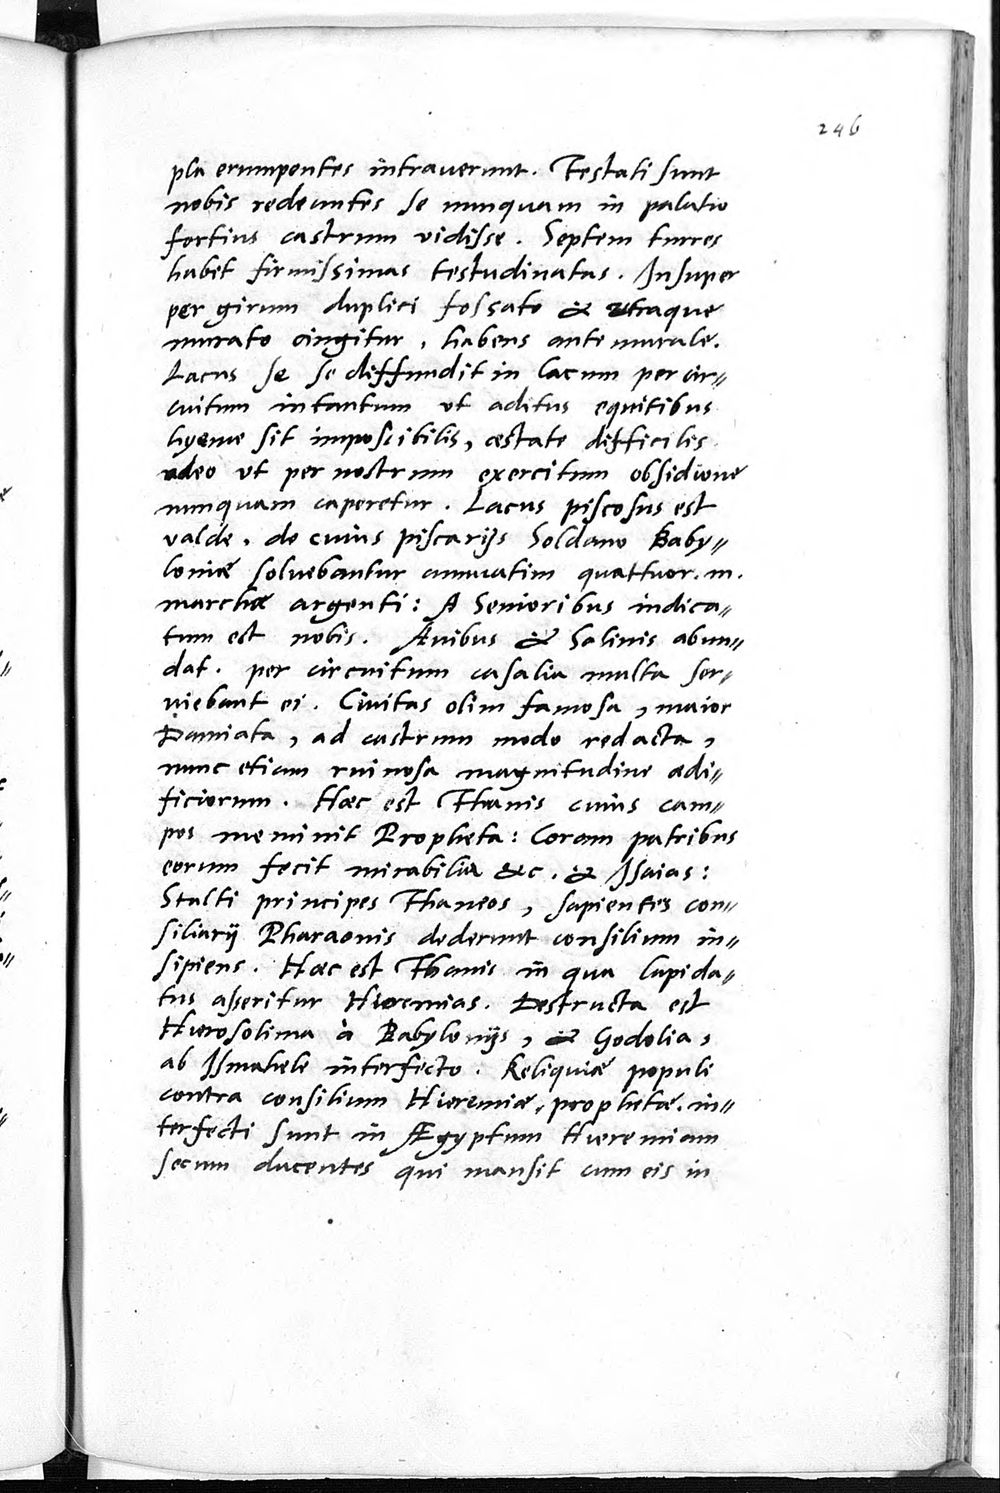 246
pla erumpentes intraverunt. Testati sunt
nobis redeuntes se nunquam in palatio
fortius castrum vidisse. Septem turres
habet firmissimas testudinatas. Insuper
per girum duplici fossato & utraque
murato cingitur, habens ante murale.
Lacus se se diffundit in lacum per cir„
cuitum intantum ut aditus equitibus
hyeme sit impossibilis, æstate difficilis
adeo ut per nostrum exercitum obsidione
nunquam caperetur. Lacus piscosus est
valde, de cuius piscarijs Soldano Baby„
loniæ solvebantur annuatim quattuor.m.
marchæ argenti: A Senioribus indica„
tum est nobis. Avibus & Salinis abun„
dat. per circuitum casalia multa ser„
viebant ei. Civitas olim famosa, maior
Damiata, ad castrum modo redacta,
nunc etiam ruinosa magnitudine ædi„
ficiorum. Hæc est Thanis cuius cam„
pos meminit Propheta: Coram patribus
eorum fecit mirabilia &c. & Isaias:
Stulti principes Thaneos, sapientes con„
siliarij Pharaonis dederunt consilium in„
sipiens. Hæc est Thanis in qua lapida„
tus asseritur Hieremias. Destructa est
Hierosolima à Babylonijs, & Godolia,
ab Ismahele interfecto. Reliquiæ populi
contra consilium Hieremiæ, prophetæ. in„
terfecti sunt in Ægyptum Hieremiam
secum ducentes qui mansit cum eis in